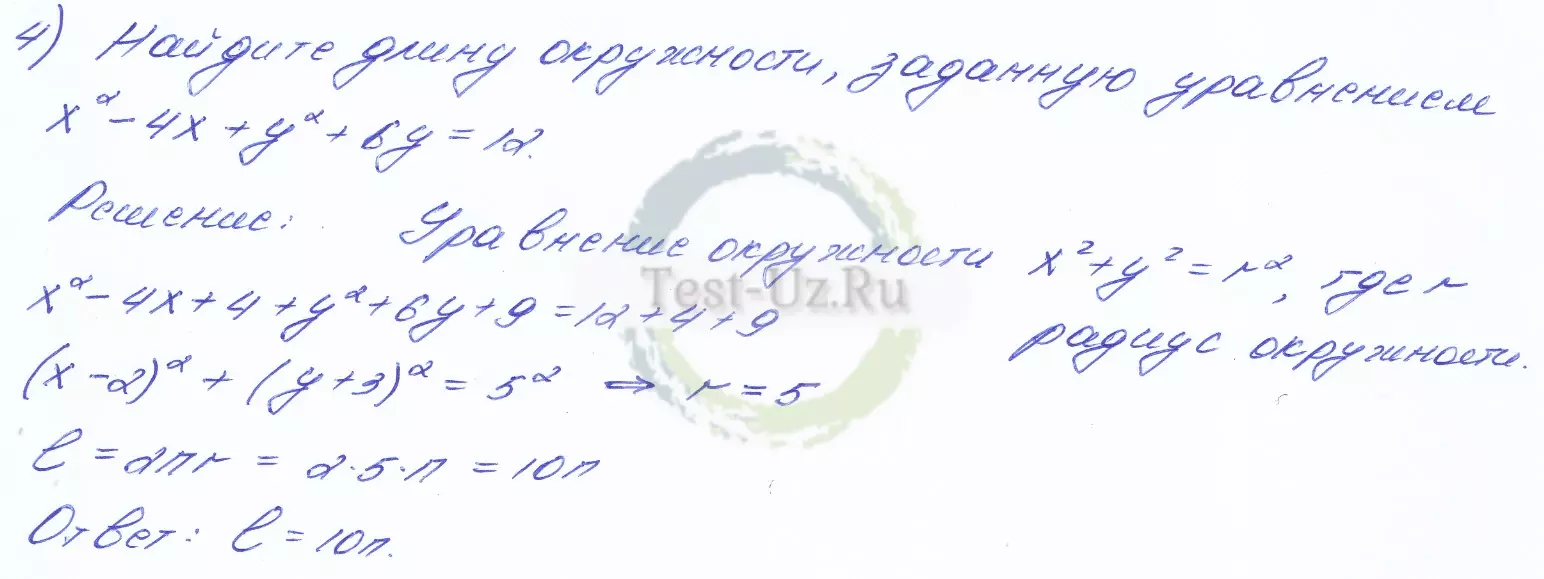 4) Найдите длину окружности, заданную уравнением
x² - 4x + y² + 6y = 12.
Решение: Уравнение окружности x² + y² = r², где r
радиус окружности.
x² - 4x + 4 + y² + 6y + 9 = 12 + 4 + 9
(x - 2)² + (y + 3)² = 5² ⇒ r = 5
ℓ = 2πr = 2·5·π = 10π
Ответ: ℓ = 10π.
Test-Uz.Ru